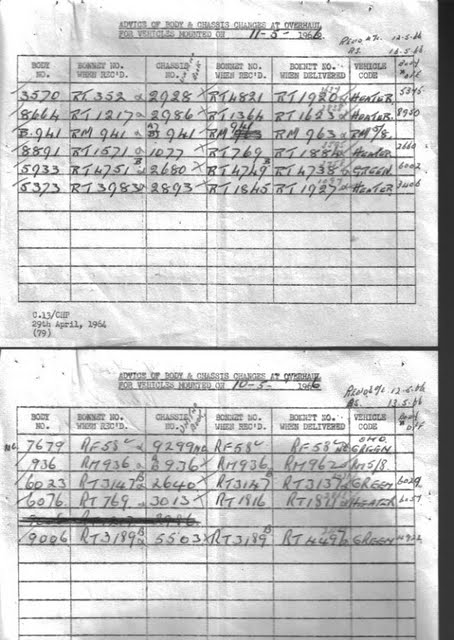 ADVICE OF BODY & CHASSIS CHANGES AT OVERHAUL
FOR VEHICLES MOUNTED ON 11-5- 1966
12-5-66
BODY NO. BONNET NO. WHEN REC'D. CHASSIS NO. BONNET NO. WHEN REC'D. BONNET NO. WHEN DELIVERED VEHICLE CODE
3570 RT352 2928 RT4821 RT1920 HEATER 5345
8664 RT1217 2986 RT1364 RT1623 HEATER
B.941 RM 941 941 RM 941 RM 963 RM 5/8.
8891 RT1571 1077 RT769 HEATER
5933 RT4751 B 2680 RT4749 RT4738 GREEN 6002
5373 RT3983 2893 RT1845 RT1927 HEATER 3406
C.13/CHP
29th April, 1964
(79)
ADVICE OF BODY & CHASSIS CHANGES AT OVERHAUL
FOR VEHICLES MOUNTED ON 10-5- 1966
12-5-66
13.5.66
BODY NO. BONNET NO. WHEN REC'D. CHASSIS NO. BONNET NO. WHEN REC'D. BONNET NO. WHEN DELIVERED VEHICLE CODE BODY OFF
7679 RF58 9299 RF58 RF58 GREEN
936 RM936 936 RM936 RM962 RM5/8
6023 RT3147 B 2640 RT3147 B RT3137 GREEN 6029
6076 RT769 3013 RT1816 HEATER 6057
9006 RT3189 B 5503 RT3189 B RT4496 GREEN 4922